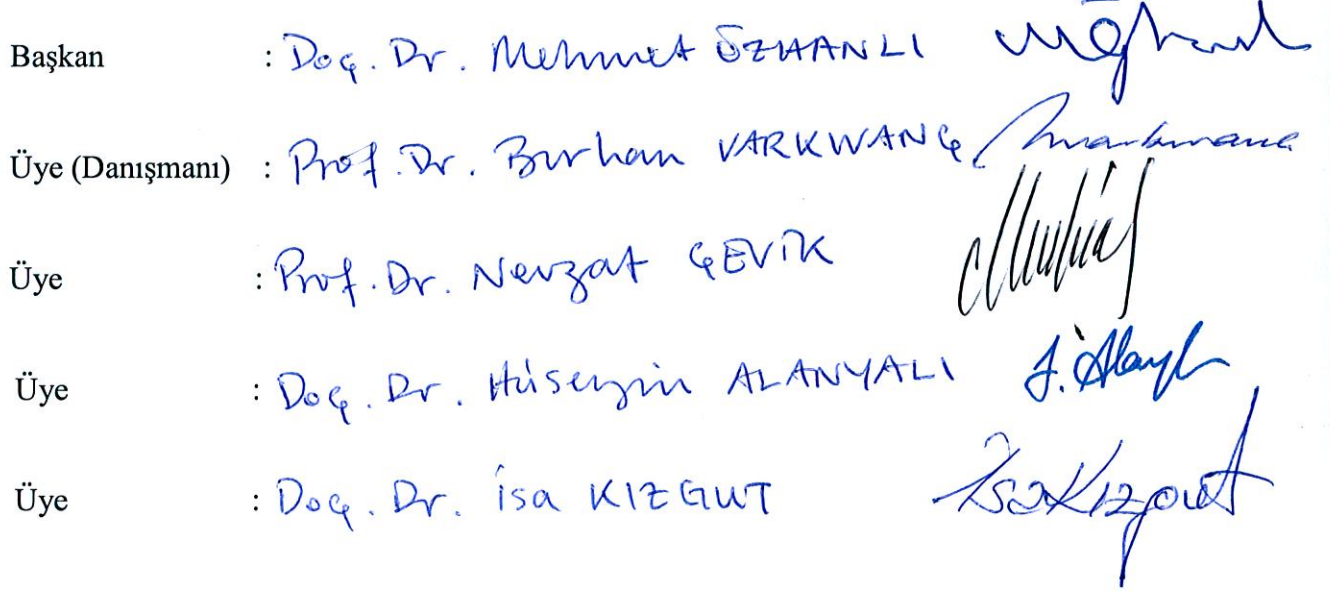 Başkan : Doç. Dr. Mehmet ÖZHANLI
Üye (Danışmanı) : Prof. Dr. Burhan VARKIVANÇ
Üye : Prof. Dr. Nevzat ÇEVİK
Üye : Doç. Dr. Hüseyin ALANYALI
Üye : Doç. Dr. İsa KIZGUT İsa Kızgut